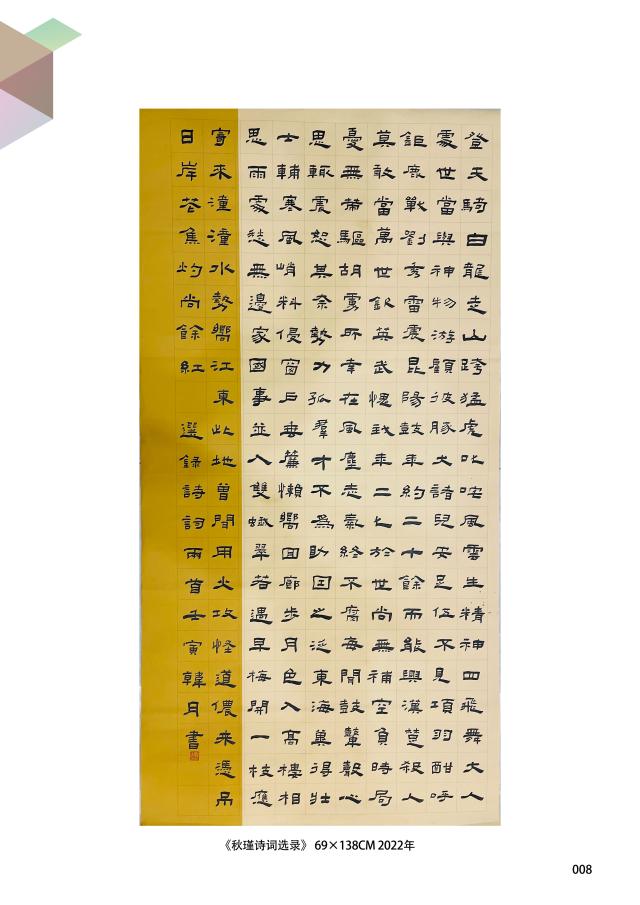 登天騎白龍走山跨猛虎叱咤風雲生精神四飛舞大人
處世當與神物游顧彼豚犬諸兒安足伍不見項羽酣呼
鉅鹿戰劉秀雷震昆陽鼓年約二十餘而能興漢楚殺人
莫敢當萬世欽英武愧我年二七於世尚無補空負時局
憂無策驅胡虜所幸在風塵志氣終不腐每聞鼓鼙聲心
思輒震怒其奈勢力孤羣才不爲助因之泛東海冀得壯
士輔寒風峭料侵窗戶垂簾懶嚮回廊步月色入高樓相
思兩處愁無邊家國事並入雙蛾翠若遇早梅開一枝應
寄來潼潼水勢嚮江東此地曾聞用火攻怪道儂來憑吊
日岸花焦灼尚餘紅 選錄詩詞兩首壬寅韓月書
《秋瑾诗词选录》 69×138CM 2022年
008